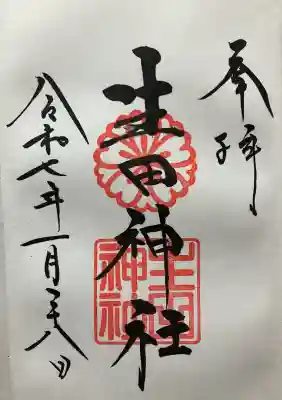 奉拝
生田神社
生田
神社
令和七年一月二十八日